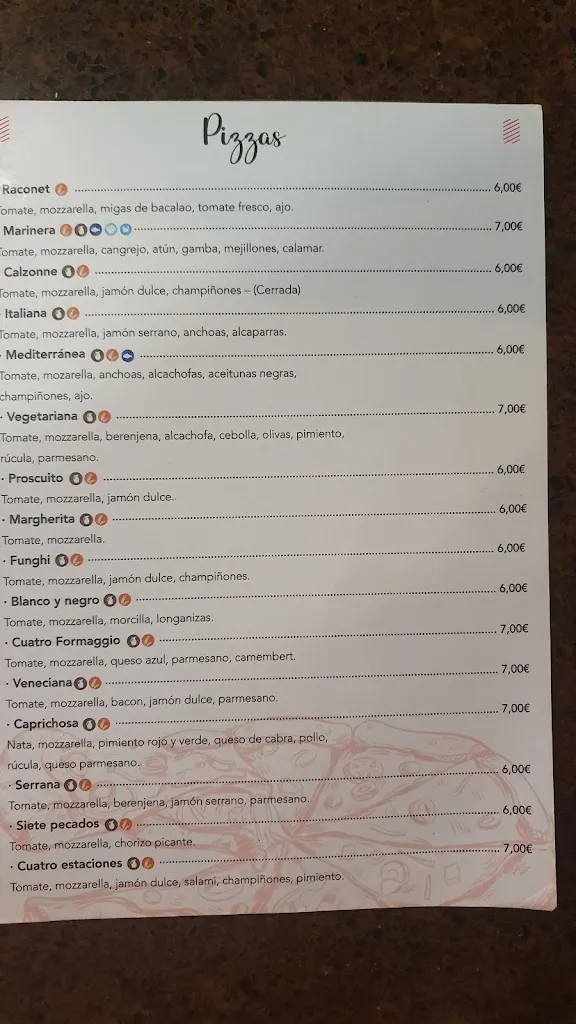 Pizzas
Raconet 6,00€
Tomate, mozzarella, migas de bacalao, tomate fresco, ajo.
Marinera 7,00€
Tomate, mozzarella, cangrejo, atún, gamba, mejillones, calamar.
Calzonne 6,00€
Tomate, mozzarella, jamón dulce, champiñones – (Cerrada)
· Italiana 6,00€
Tomate, mozzarella, jamón serrano, anchoas, alcaparras.
· Mediterránea 6,00€
Tomate, mozarella, anchoas, alcachofas, aceitunas negras,
champiñones, ajo.
· Vegetariana 7,00€
Tomate, mozzarella, berenjena, alcachofa, cebolla, olivas, pimiento,
rúcula, parmesano.
· Proscuito 6,00€
Tomate, mozzarella, jamón dulce.
· Margherita 6,00€
Tomate, mozzarella.
· Funghi 6,00€
Tomate, mozzarella, jamón dulce, champiñones.
· Blanco y negro 6,00€
Tomate, mozzarella, morcilla, longanizas.
· Cuatro Formaggio 7,00€
Tomate, mozzarella, queso azul, parmesano, camembert.
· Veneciana 7,00€
Tomate, mozzarella, bacon, jamón dulce, parmesano.
· Caprichosa 7,00€
Nata, mozzarella, pimiento rojo y verde, queso de cabra, pollo,
rúcula, queso parmesano.
· Serrana 6,00€
Tomate, mozzarella, berenjena, jamón serrano, parmesano.
· Siete pecados 6,00€
Tomate, mozzarella, chorizo picante.
· Cuatro estaciones 7,00€
Tomate, mozzarella, jamón dulce, salami, champiñones, pimiento.